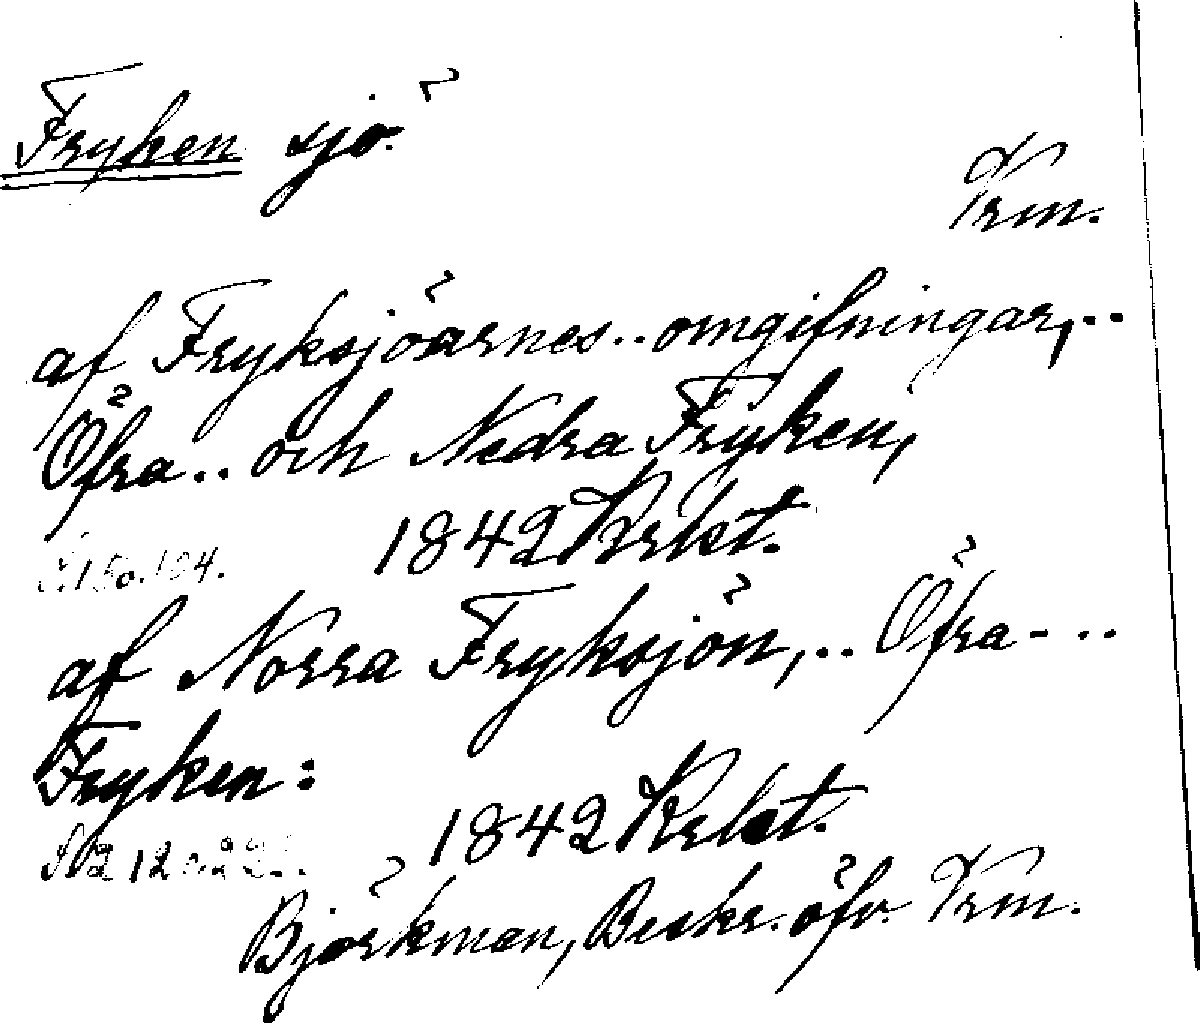 Fryken sjö
Vrm.
af Fryksjöarnes.. omgifningar,..
Öfra.. och Nedra Fryken,
1842 Krkt.
af Norra Fryksjön,.. Öfra-..
Fryken:
1842 Krkt.
Björkman, Beskr. öfv. Vrm.